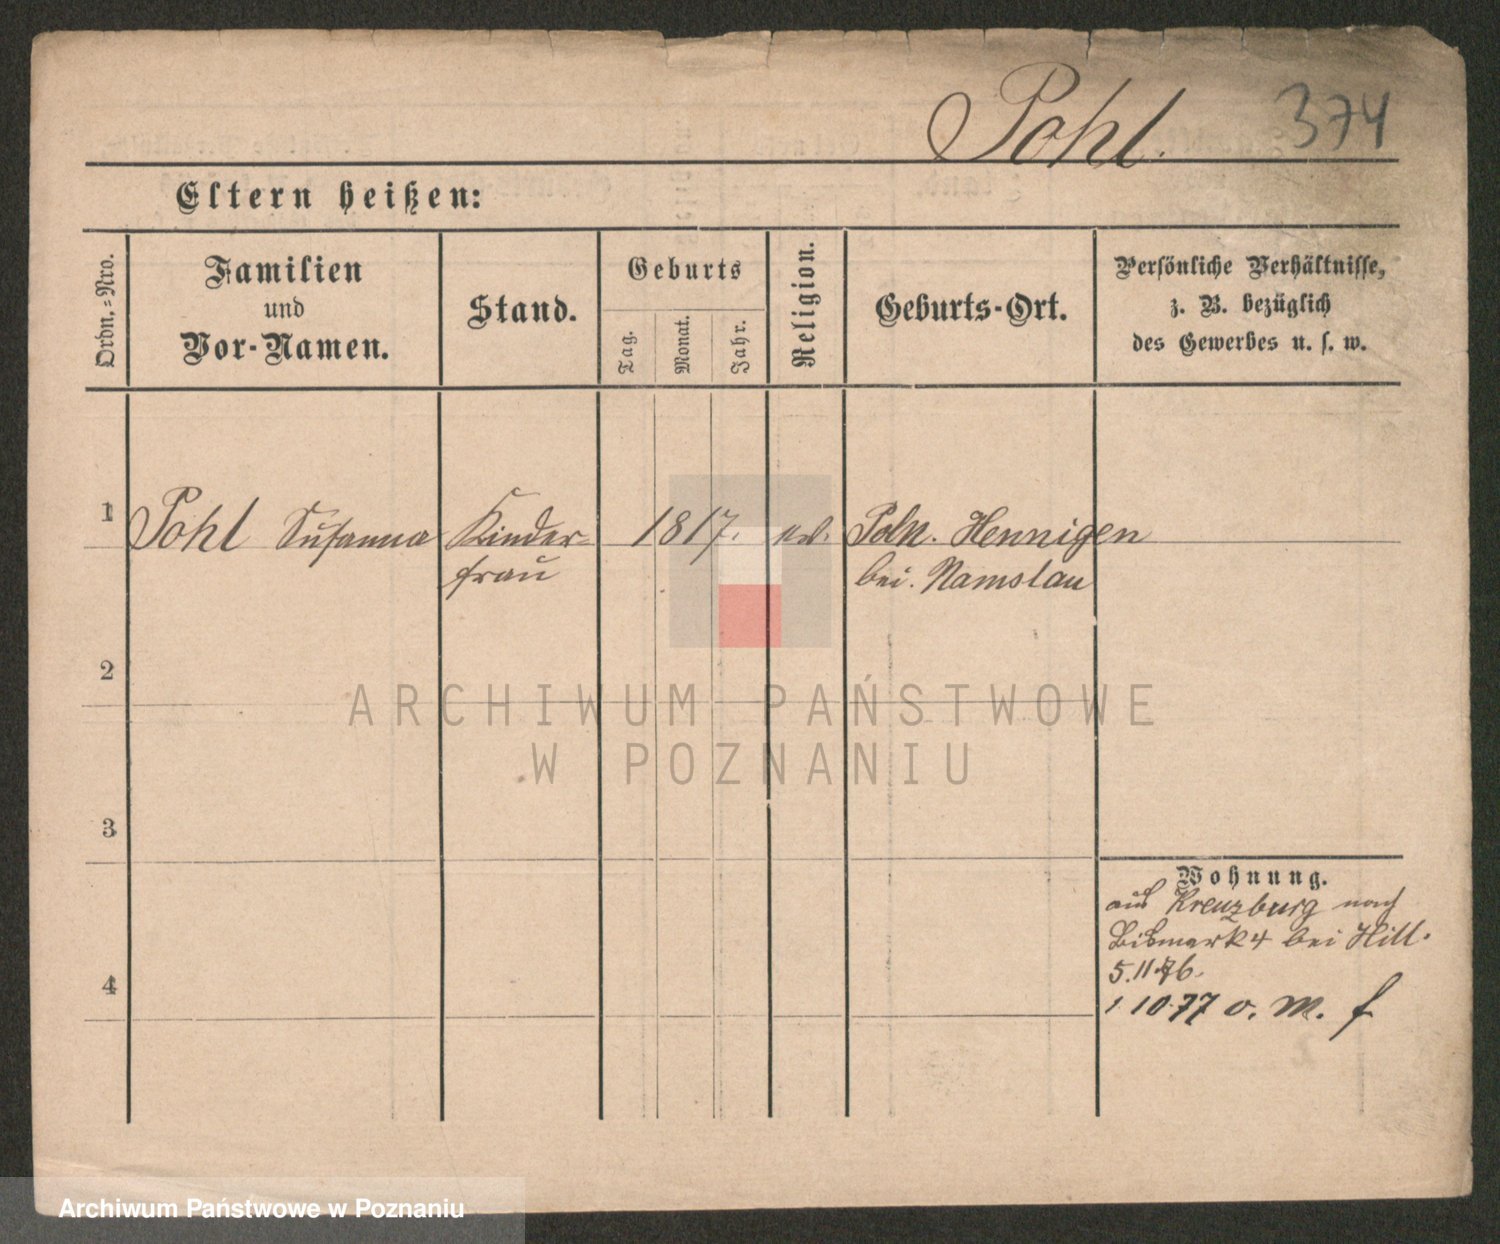 Pohl. 374
Eltern heißen:
Ordn.-Nro.
Familien
und
Vor-Namen.
Stand.
Geburts
Tag.
Monat.
Jahr.
Religion.
Geburts-Ort.
Persönliche Verhältnisse,
z. B. bezüglich
des Gewerbes u. s. w.
1 Pohl Susanna Kinder- 1817. Poln. Hennigen
frau bei. Namslau
2
3
4
Wohnung.
aus Kreuzburg nach
Bismark 4 bei Hill.
5.11.76.
1 10.77 o. M. f
ARCHIWUM PAŃSTWOWE
W POZNANIU
Archiwum Państwowe w Poznaniu